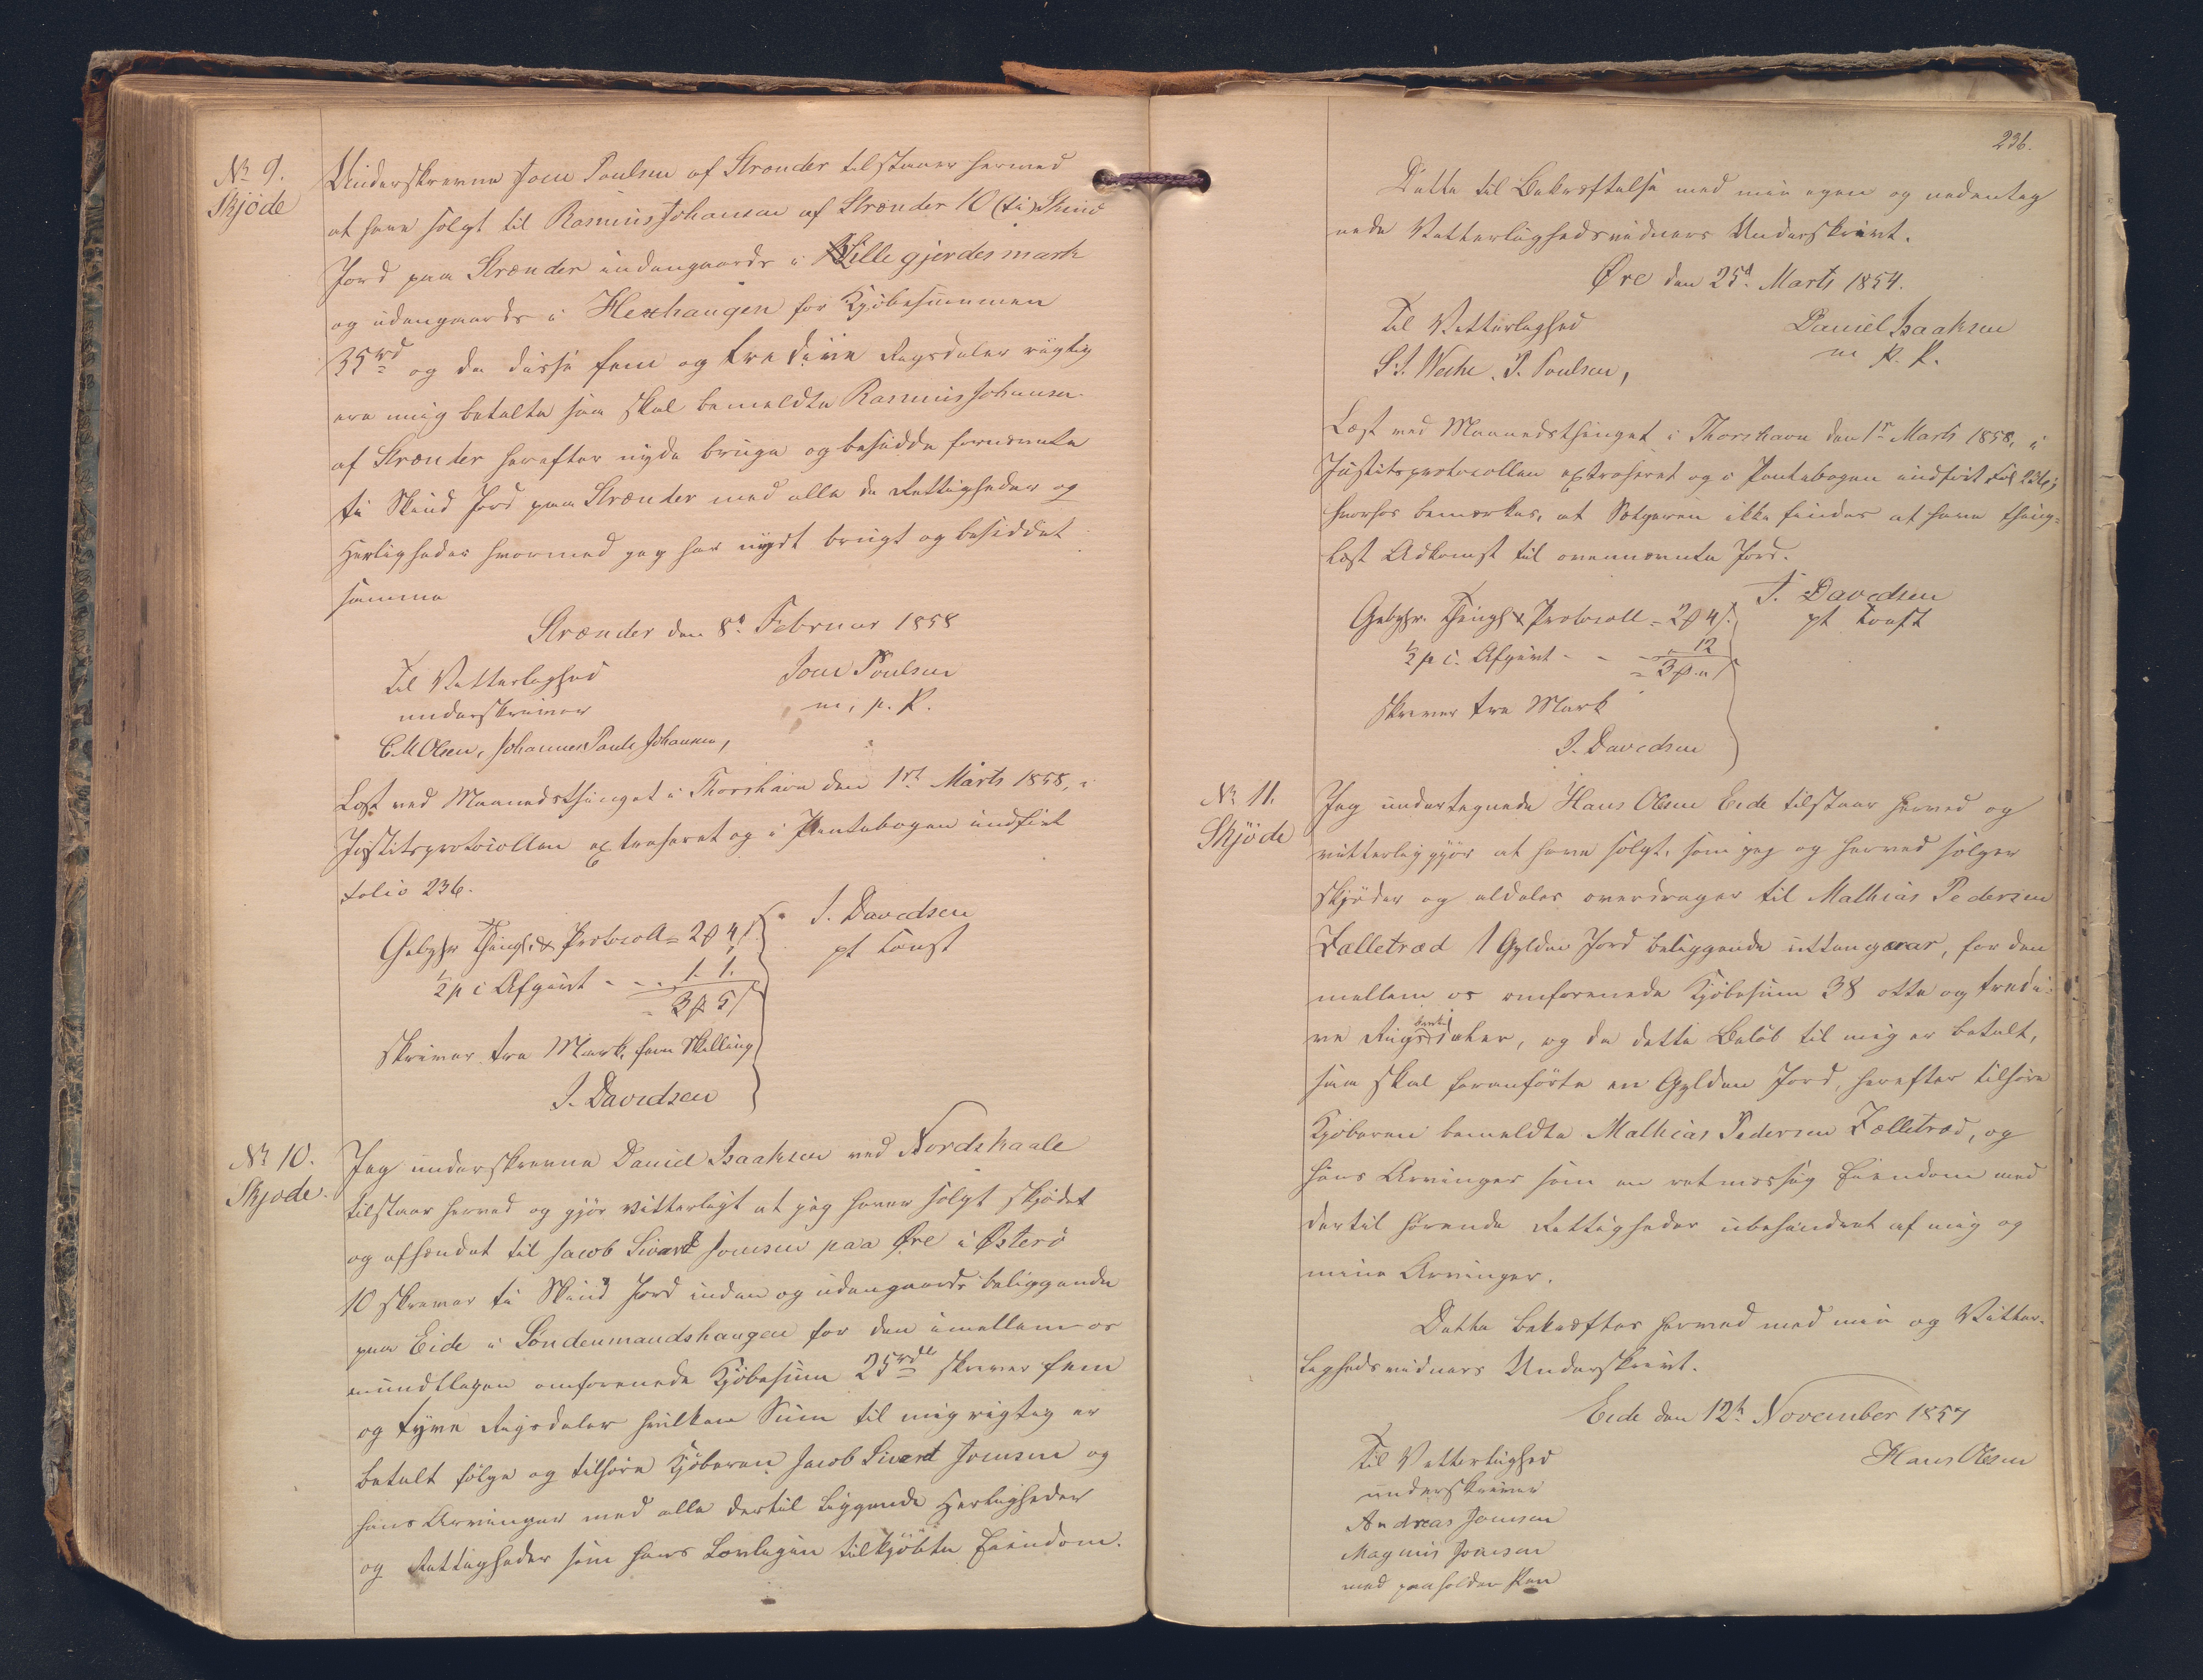 No 9.
Skjöde
Underskrevne Joen Poulsen af Strænder tilstaaer hermed
at have solgt til Rasmus Johansen af Strænder 10 (ti) Skind
Jord paa Strænder indengaards i Lille gjerdesmark
og udengaards i Hexhaugen for Kjöbesummen
35 rd og da disse fem og tredive Rigsdaler rigtig
ere mig betalte saa skal bemeldte Rasmus Johansen
af Strænder herefter nyde bruge og besidde fornævnte
ti Skind Jord paa Strænder med alle de Rettigheder og
Herligheder hvormed jeg har nydt brugt og besiddet
samme
Strænder den 8d Februar 1858
Til Vitterlighed
Joen Poulsen
underskriver
m. p. P.
E. M. Olsen, Johannes Pauli Johansen,
Læst ved Maanedsthinget i Thorshavn den 1ste Marts 1858, i
Justitsprotocollen extraheret og i Pantebogen indført
folio 236.
J. Davidsen
pt Const
Gebyhr Thingl. & Protocoll = 2 ₻ 4 /
1/2 p c Afgivt - - - 1. 1.
= 3 ₻ 5 /
skriver tre Mark, fem Skilling
J. Davidsen
No 10.
Skjøde.
Jeg underskrevne Daniel Isaaksen ved Nordskaale
tilstaar herved og gjör vitterligt at jeg haver solgt skjödet
og afhændet til Jacob Sivert Joensen paa Øre i Østerö
10 skriver ti Skind Jord inden og udengaards beliggende
paa Eide i Søndenmandshaugen for den imellem os
mundtligen omforenede Kjöbesum 25 rd skriver fem
og tyve Rigsdaler hvilken Sum til mig rigtig er
betalt følge og tilhøre Kjöberen Jacob Sivert Joensen og
hans Arvinger med alle dertil liggende Herligheder
og Rettigheder som hans Lovligen tilkjöbte Eiendom.
236.
Dette til Bekræftelse med min egen og nedenteg
nede Vitterlighedsvidners Underskrivt.
Øre den 25d Marts 1854.
Til Vitterlighed
Daniel Isaaksen
m p. P.
S. S. Weihe. P. Poulsen,
Læst ved Maanedsthinget i Thorshavn den 1ste Marts 1858, i
Justitsprotocollen extraheret og i Pantebogen indført Fol 236;
hvorhos bemærkes, at Sælgeren ikke findes at have thing-
læst Adkomst til ovennævnte Jord.
J. Davidsen
pt Const
Gebyhr. Thingl & Protocoll = 2 ₻ 4 /.
1/2 p c. Afgivt - - - 12
= 3 ₻ " /
skriver tre Mark
J. Davidsen
No 11.
Skjöde
Jeg undertegnede Hans Olesen Eide tilstaar herved og
vitterliggjör at have solgt, som jeg og herved sölger
skjöder og aldeles overdrager til Mathias Pedersen
Fælletræd 1 Gylden Jord beliggende uttangarar, for den
mellem os omforenede Kjöbesum 38 otte og tredi-
ve Rigsbankdaler, og da dette Belöb til mig er betalt,
saa skal foranførte en Gylden Jord, herefter tilhøre
Kjøberen bemeldte Mathias Pedersen Fælletræd, og
hans Arvinger som en retmæssig Eiendom med
dertil hørende Rettigheder ubehindret af mig og
mine Arvinger.
Dette bekræftes hermed med min og Vitter-
lighedsvidners Underskrivt.
Eide den 12te November 1857
Til Vitterlighed
Hans Olesen
underskriver
Andreas Joensen
Magnus Joensen
med paaholden Pen